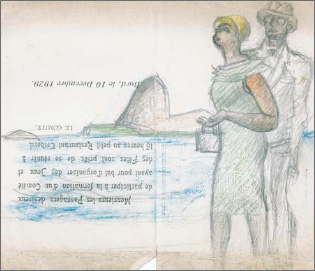 Messieurs les Passagers désireux
de participer à la formation d'un Comité
ayant pour but d'organiser des Jeux et
des Fêtes sont priés de se réunir à
16 heures au petit Restaurant
LE COMITÉ.
Bord, le 10 Décembre 1929.